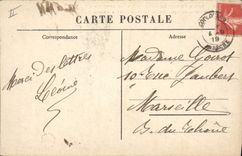 CARTE POSTALE
Correspondance
Adresse
Merci des lettres
Léonie
Madame
10 Rue Jaubert
Marseille
B. du Rhône